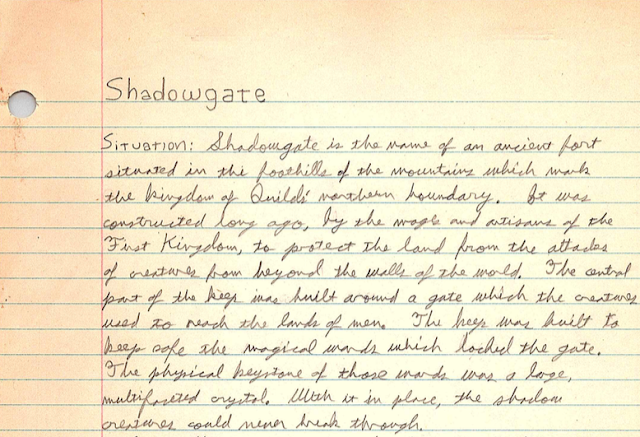 Shadowgate
Situation: Shadowgate is the name of an ancient fort
situated in the foothills of the mountains which mark
the kingdom of northern boundary. It was
constructed long ago, by the mages and artisans of the
First Kingdom, to protect the land from the attacks
of creatures from beyond the walls of the world. The central
part of the keep was built around a gate which the creatures
used to reach the lands of men. The keep was built to
keep safe the magical wards which locked the gate.
The physical keystone of those wards was a large,
multifaceted crystal. With it in place, the shadow
creatures could never break through.